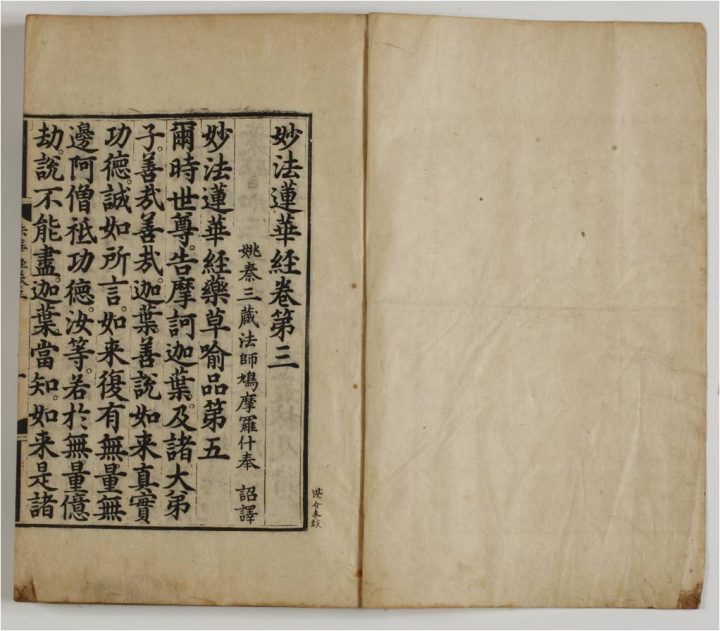 妙法蓮華經卷第三
姚秦三藏法師鳩摩羅什奉 詔譯
妙法蓮華經藥草喻品第五
爾時世尊。告摩訶迦葉。及諸大弟
子。善哉善哉。迦葉善說如來真實
功德。誠如所言。如來復有無量無
邊阿僧祗功德。汝等。若於無量億
劫。說不能盡。迦葉當知。如來是諸